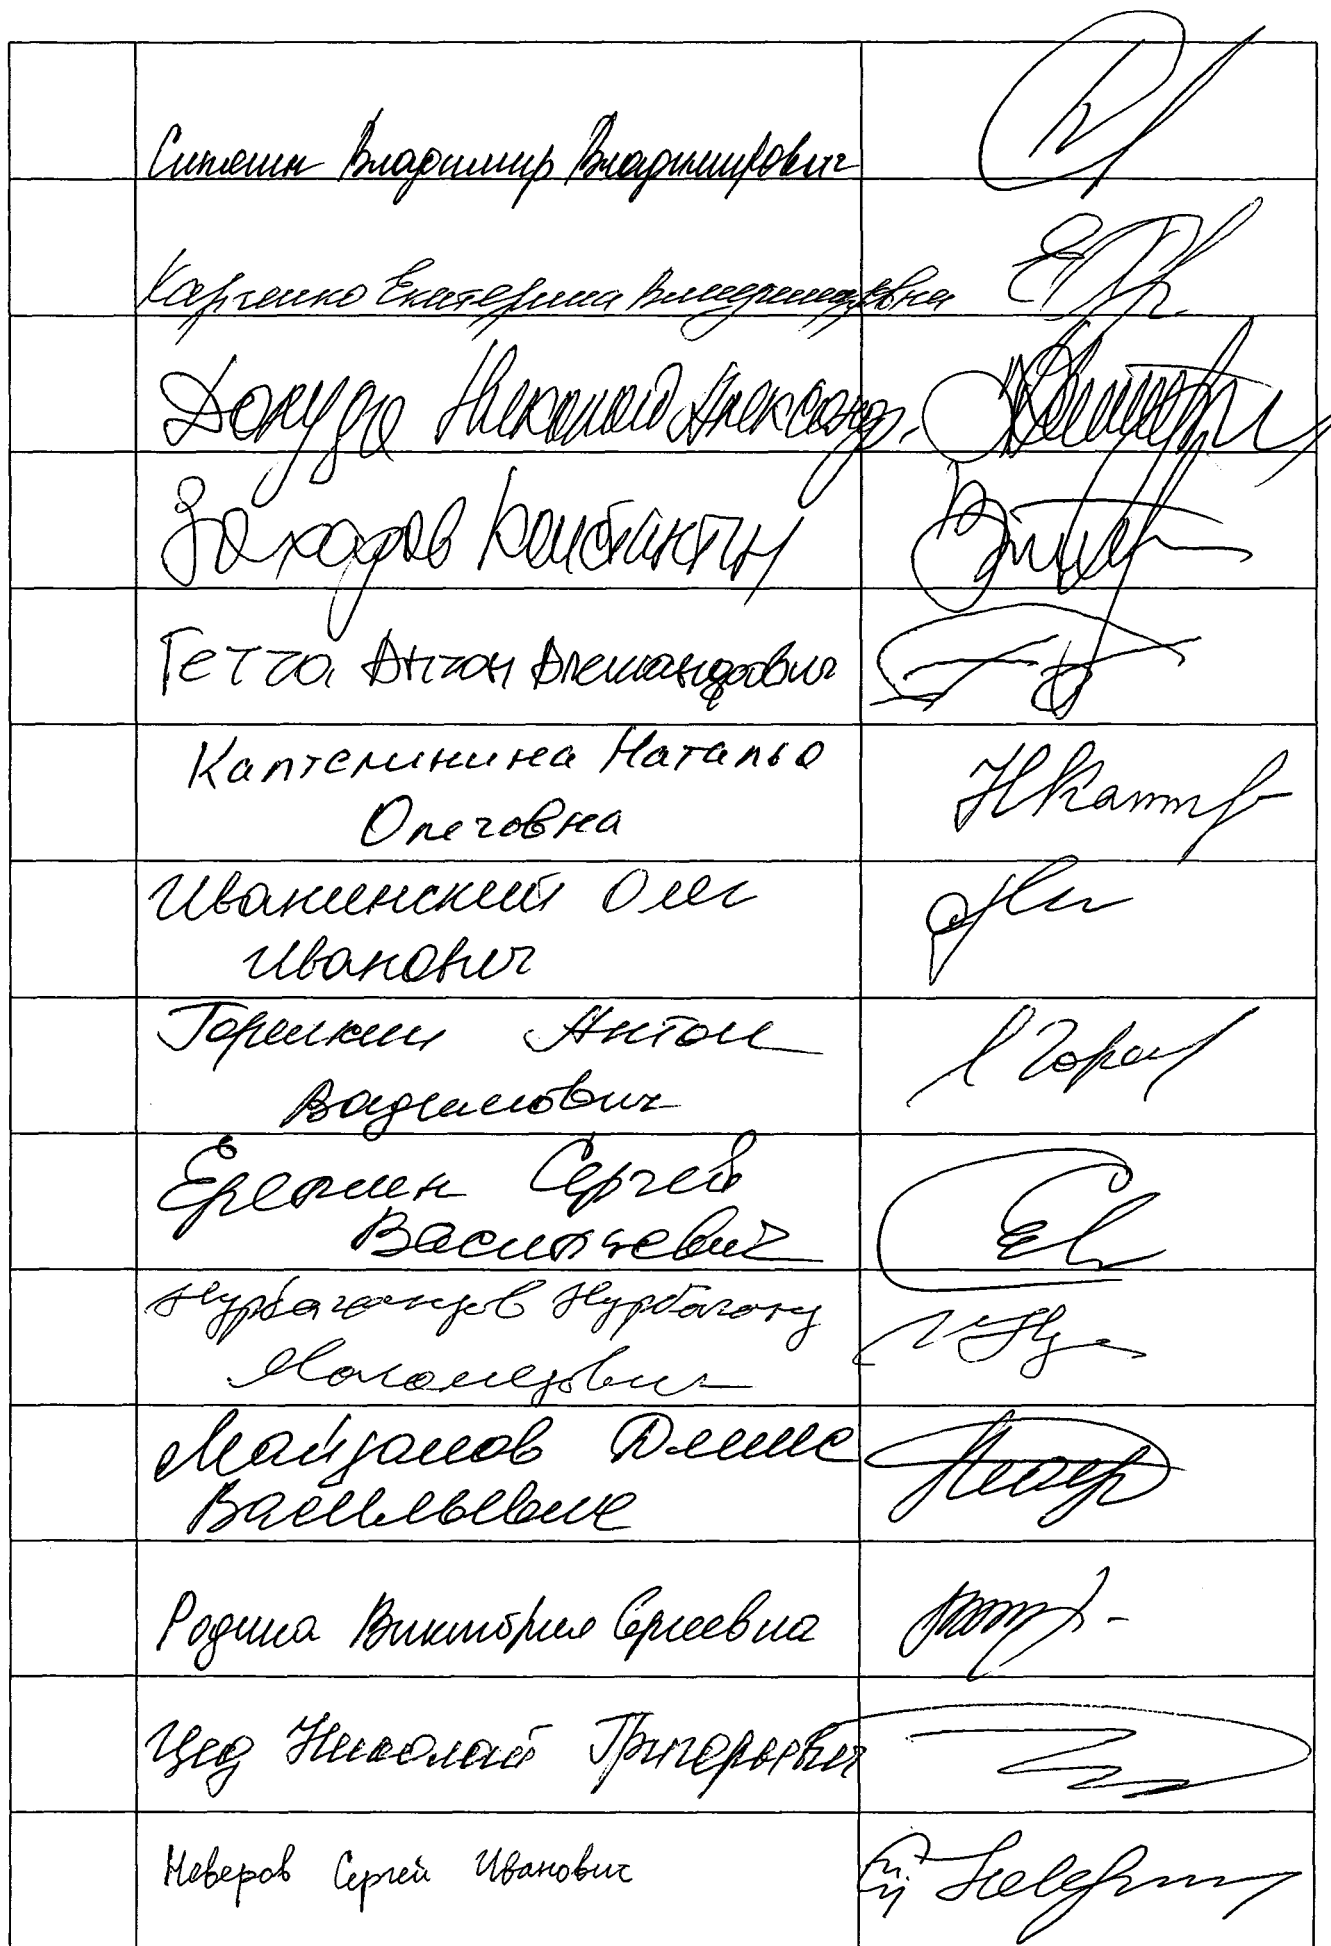 Сипягин Владимир Владимирович
Харченко Екатерина Владимировна
Докуда Николай Александр.
Захаров Константин
Гетта Антон Александрович
Каптелинина Наталья
Олеговна
Иванинский Олег
Иванович
Горелкин Антон
Вадимович
Еремин Сергей
Васильевич
Нурбагандов Нурбаганд
Магомедович
Майданов Денис
Васильевич
Родина Виктория Сергеевна
Цед Николай Григорьевич
Неверов Сергей Иванович